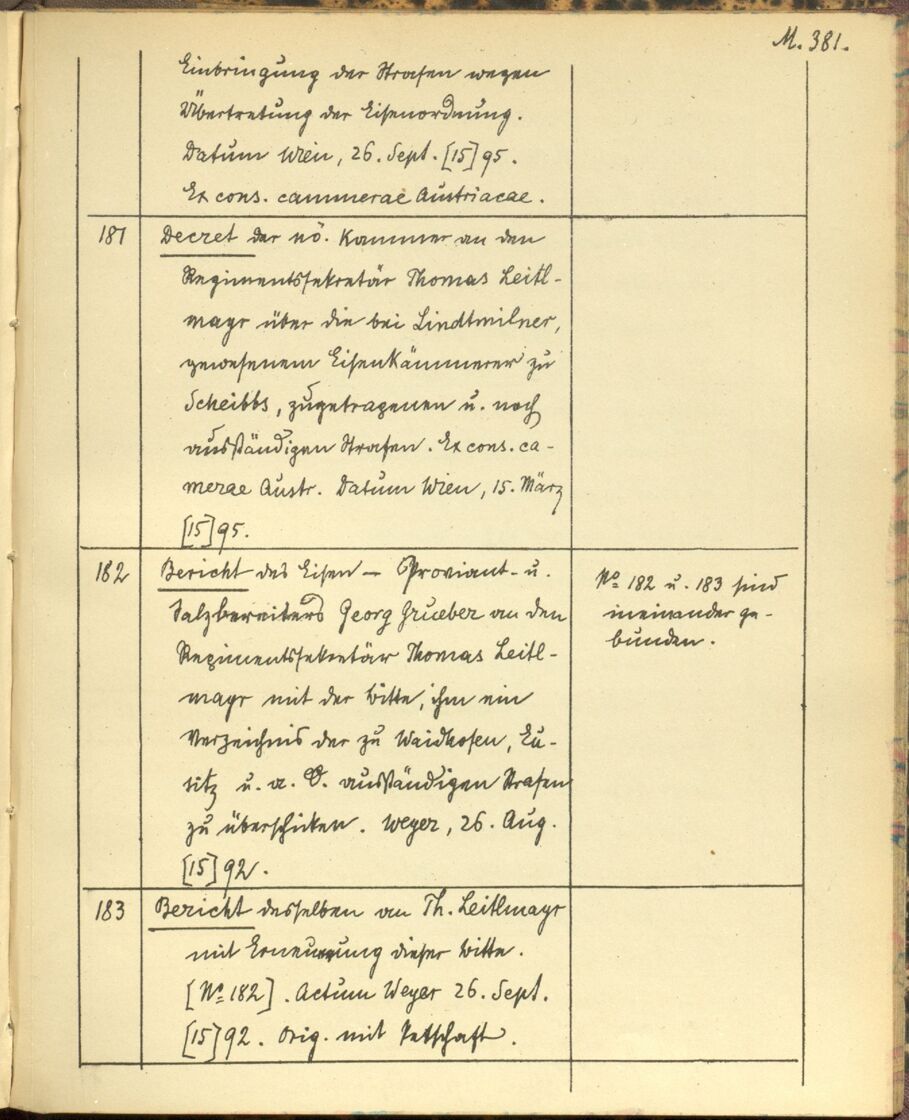 M. 381.
Einbringung der Strafen wegen
Übertretung der Eisenordnung.
Datum Wien, 26. Sept. [15]95.
Ex cons. cammerae Austriacae.
181
Decret der nö. Kammer an den
Regimentssekretär Thomas Leitl-
mayr über die bei Lindtmilner,
gewesenem Eisenkämmerer zu
Scheibbs, zugetragenen u. noch
ausständigen Strafen. Ex cons. ca-
merae Austr. Datum Wien, 15. März
[15]95.
182
Bericht des Eisen- Proviant- u.
Salzbereiters Georg Grueber an den
Regimentssekretär Thomas Leitl-
mayr mit der Bitte, ihm ein
Verzeichnis der zu Waidhofen, Eu-
ritz u. a. O. ausständigen Strafen
zu überschicken. Weyer, 26. Aug.
[15]92.
No 182 u. 183 sind
ineinander ge-
bunden.
183
Bericht desselben an Th. Leitlmayr
mit Erneuerung dieser Bitte.
[No 182]. Actum Weyer 26. Sept.
[15]92. Orig. mit Petschaft.